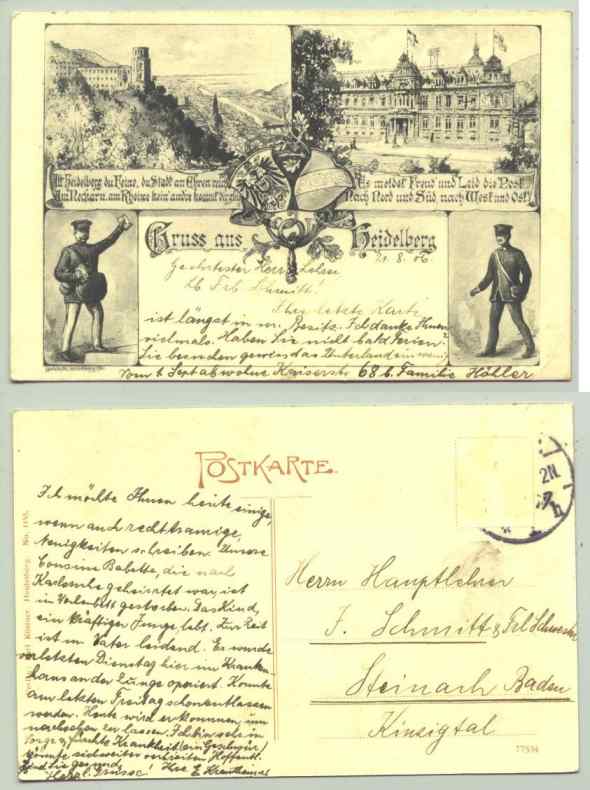 Alt Heidelberg du Feine, du Stadt an Ehren reich,
Am Neckar u. am Rheine kein' andre kommt dir gleich
Es meldet Freud' und Leid die Post
Nach Nord und Süd, nach West und Ost.
Gruss aus Heidelberg
8. 06.
Geehrtester Herr
& Frl. Schmitt!
Ihre letzte Karte
ist längst in m. Besitz. Ich danke Ihnen
vielmals. Haben Sie nicht bald Ferien.
Sie besuchen gewiss das Unterland ein wenig
Vom 1. Sept ab wohne Kaiserstr. 68 b. Familie Höhler
POSTKARTE.
Ich möchte Ihnen heute einige,
wenn auch
Neuigkeiten schreiben. Unsere
Cousine Babette, die nach
Karlsruhe geheiratet war, ist
im gestorben. Das Kind,
ein kräftiger Junge lebt. Zur Zeit
ist m. Vater leidend. Er wurde
vorletzten Dienstag hier im Kranken-
haus an der Lunge operiert. Konnte
am letzten Freitag schon entlassen
werden. Heute wird er kommen, um
nachsehen zu lassen. Ich bin sehr in
Sorge, & fürchte Krankheit (ein Geschwür)
könnte sich weiter verbreiten. Hoffentl.
sind Sie gesund.
Herzl. Grüsse! Ihre E.
Heidelberg. No.
Herrn Hauptlehrer
J. Schmitt & Frl. Schwester
Steinach Baden
Kinzigtal